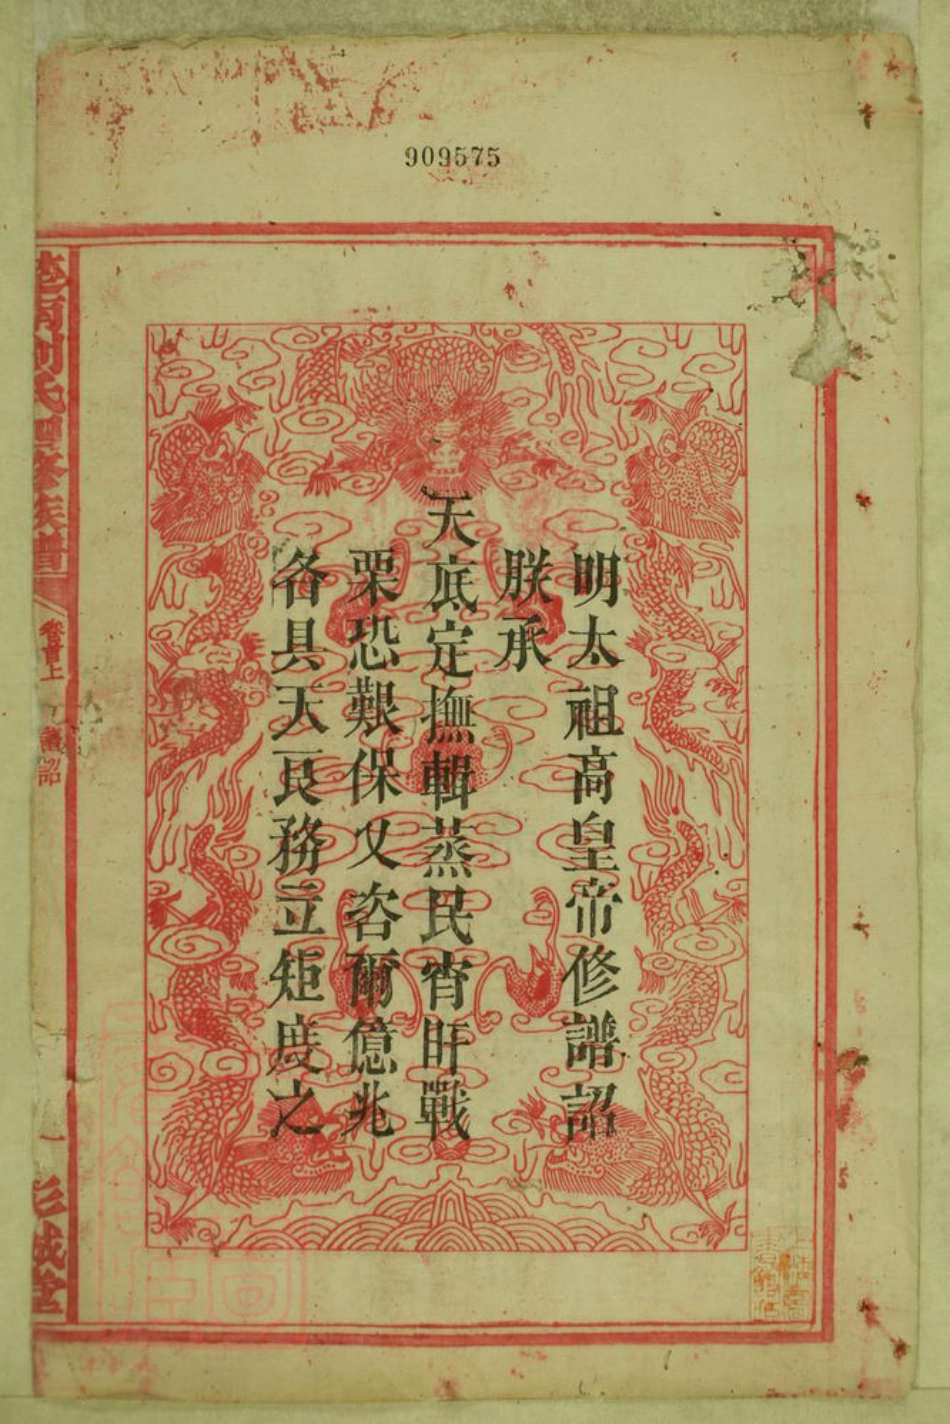 909575
明太祖高皇帝修譜詔
朕承
天底定撫輯蒸民宵旰戰
栗恐艱保乂咨爾億兆
各具天良務立矩度之
氏四修族譜
卷首上
詔
一
彭城堂